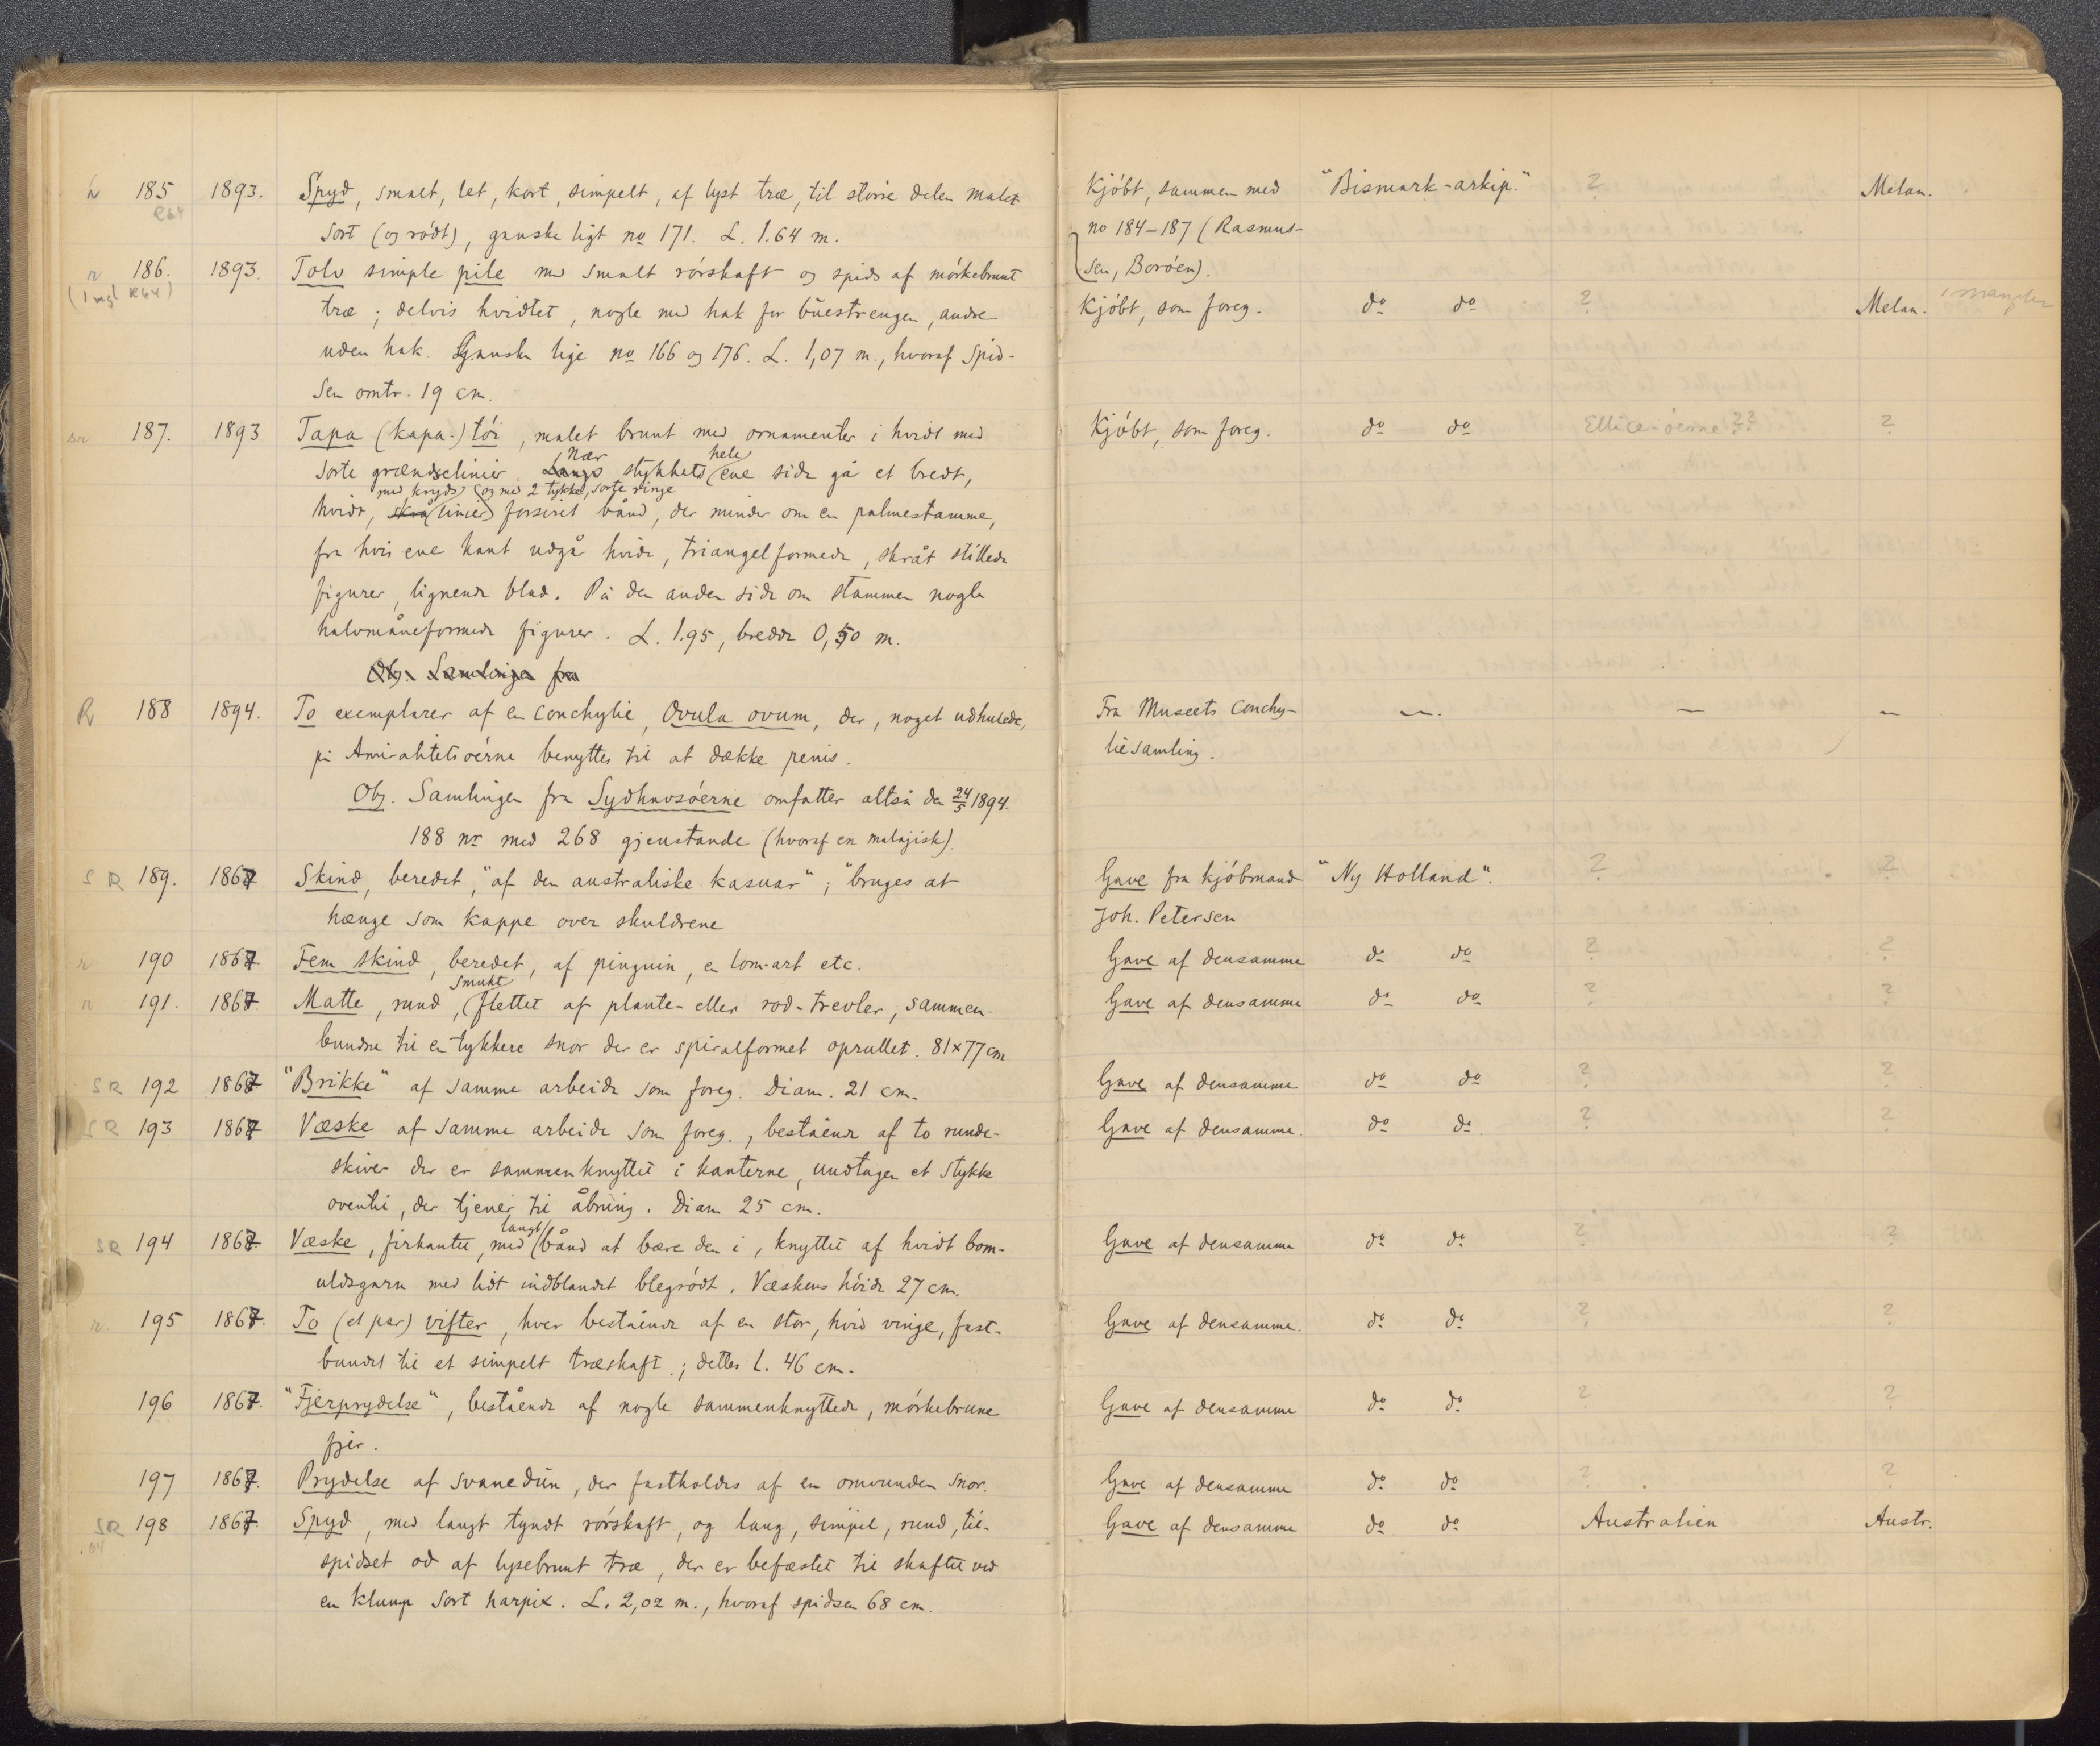 185 1893. Spyd, smalt, let, kort, simpelt, af lyst træ, til større delen malet Kjöbt, sammen med "Bismark-arkip." ? Melan.
R64 sort (og rödt), ganske ligt no 171. L. 1.64 m. no 184–187 (Rasmus-
r 186. 1893. Tolv simple pile med smalt rörskaft og spids af mörkebrunt sen, Boröen).
(1 mgl R64) træ; delvis hvidtet, nogle med hak for buestrengen, andre Kjöbt, som foreg. do do ? Melan. 1 mangler
uden hak. Ganske lige no 166 og 176. L. 1,07 m., hvoraf spid-
sen omtr. 19 cm.
sr 187. 1893 Tapa (kapa-) töi, malet brunt med ornamenter i hvidt med Kjöbt, som foreg. do do Ellice-öerne ?? ?
sorte grændselinier. Langs Nær stykkets hele ene side gå et bredt,
hvidt, skrå med kryds linier og med 2 tykke, sorte ringe forsiret bånd, der minder om en palmestamme,
fra hvis ene kant udgå hvide, triangelformede, skråt stillede
figurer, lignende blad. På den anden side om stammen nogle
halvmåneformede figurer. L. 1.95, bredde 0,50 m.
Obs. Samlingen fra
R 188 1894. To exemplarer af en conchylie, Ovula ovum, der, noget udhulede, Fra Museets Conchy- — — —
på Amiralitetsöerne benyttes til at dække penis. liesamling.
Obs. Samlingen fra Sydhavsöerne omfatter altså den 24/5 1894.
188 nr med 268 gjenstande (hvoraf en malajisk).
S R 189. 1867 Skind, beredet, "af den australiske kasuar"; "bruges at Gave fra kjöbmand "Ny Holland". ? ?
hænge som kappe over skuldrene Joh. Petersen
r 190 1867 Fem skind, beredet, af pinguin, en lom-art etc. Gave af densamme do do ? ?
r 191. 1867. Matte, rund, smukt flettet af plante- eller rod-trevler, sammen- Gave af densamme do do ? ?
bundne til en tykkere snor der er spiralformet oprullet. 81×77 cm
SR 192 1867 "Brikke" af samme arbeide som foreg. Diam. 21 cm. Gave af densamme do do ? ?
SR 193 1867 Væske af samme arbeide som foreg., bestående af to runde Gave af densamme. do do. ? ?
skiver der er sammenknyttet i kanterne, undtagen et stykke
oventil, der tjener til åbning. Diam 25 cm.
SR 194 1867. Væske, firkantet, med langt bånd at bære den i, knyttet af hvidt bom- Gave af densamme do do ? ?
uldsgarn med lidt indblandet blegrödt. Væskens höide 27 cm.
r. 195 1867. To (et par) vifter, hver bestående af en stor, hvid vinge, fast- Gave af densamme. do do ? ?
bundet til et simpelt træskaft; dettes l. 46 cm.
196 1867. "Fjerprydelse", bestående af nogle sammenknyttede, mörkebrune Gave af densamme do do ? ?
fjer.
197 1867. Prydelse af svanedun, der fastholdes af en omvunden snor. Gave af densamme do do ? ?
SR 198 1867. Spyd, med langt tyndt rörskaft, og lang, simpel, rund, til- Gave af densamme do do Australien Austr.
.64 spidset od af lysebrunt træ, der er befæstet til skaftet ved
en klump sort harpix. L. 2,02 m., hvoraf spidsen 68 cm.